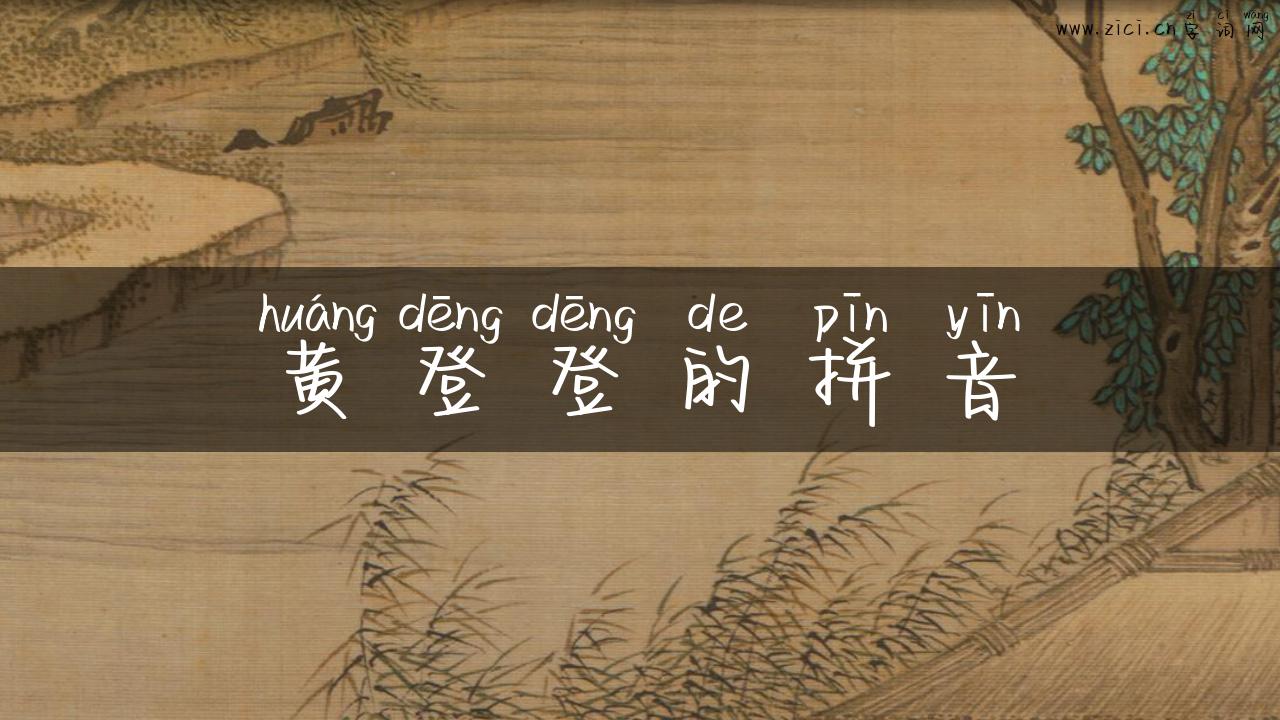 zì cí wǎng
www.zici.cn字词网
huáng dēng dēng de pīn yīn
黄登登的拼音